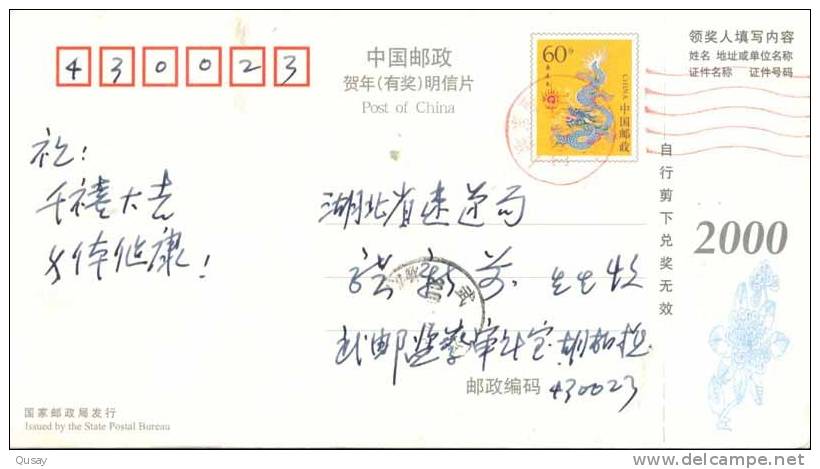 430023
中国邮政
贺年(有奖)明信片
Post of China
60分
CHINA
中国邮政
领奖人填写内容
姓名 地址或单位名称
证件名称 证件号码
祝:
千禧大吉
身体健康!
湖北省速递局
新 先生收
武
邮
邮政编码 430023
自行剪下兑奖无效
2000
国家邮政局发行
Issued by the State Postal Bureau
Qusay
www.delcampe.net